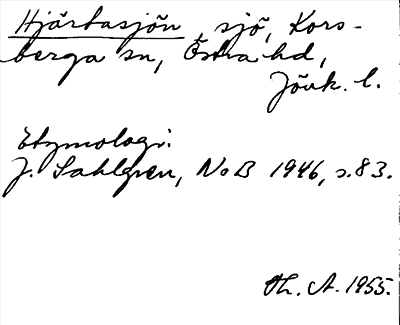 Hjärtasjön, sjö, Kors-
berga sn, Östra hd,
Jönk. l.
Etymologi:
J. Sahlgren, NoB 1946, s. 83.
Th. A. 1955.